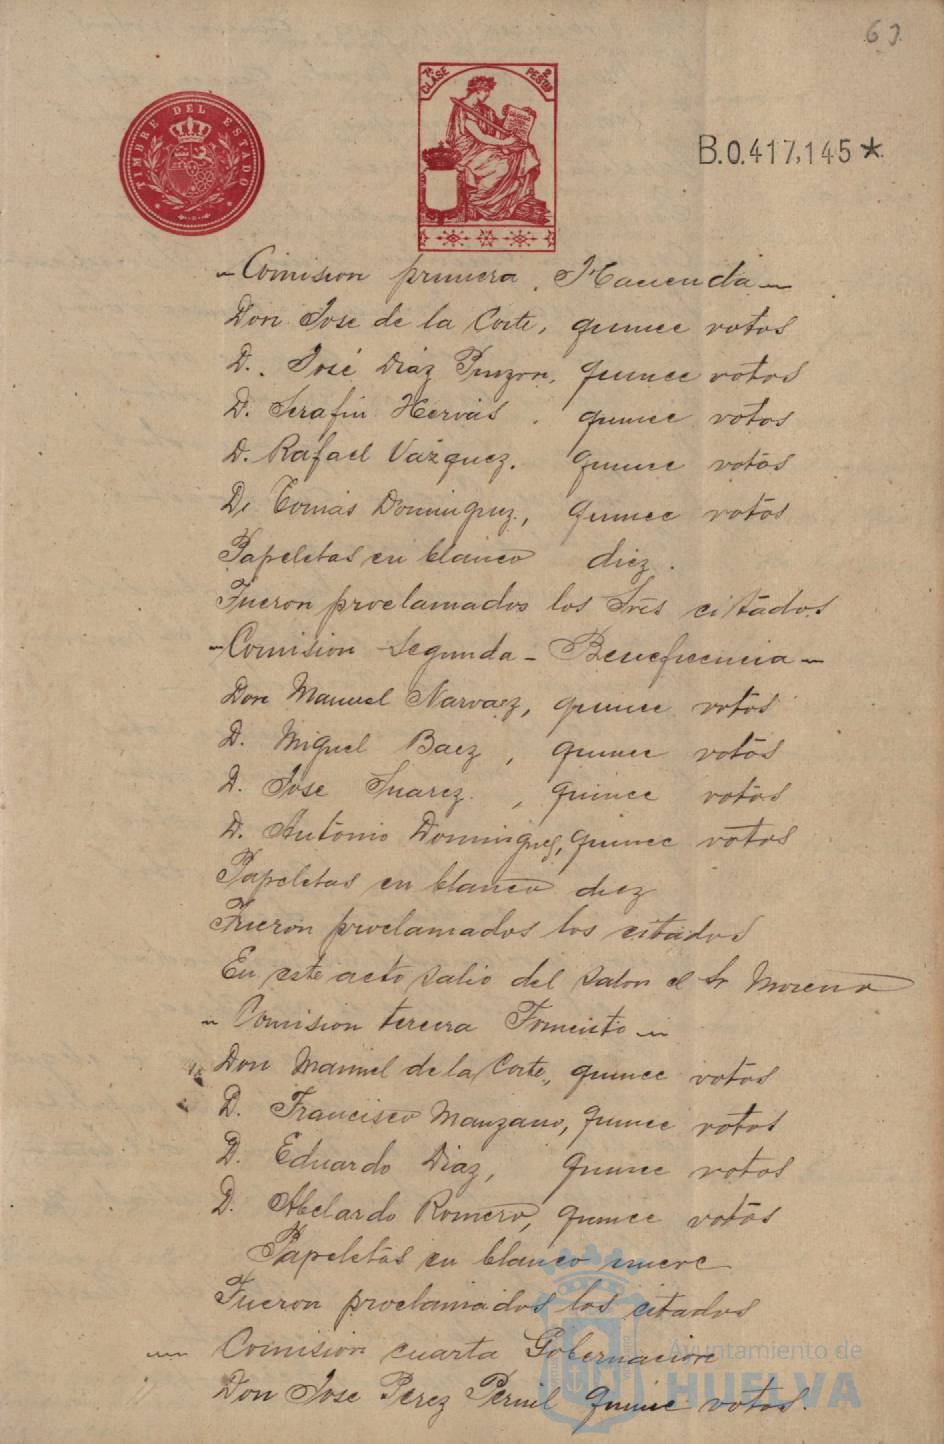 63
TIMBRE DEL ESTADO
7ª CLASE
2 PESETAS
B.0.417,145*
Comision primera. Hacienda
Don Jose de la Corte, quince votos
D. José Diaz Pinzon, quince votos
D. Serafin Hervás. quince votos
D. Rafael Vázquez. quince votos
D. Tomás Dominguez, quince votos
Papeletas en blanco diez.
Fueron proclamados los Srēs citados
Comision Segunda - Beneficencia
Don Manuel Narvaez, quince votos
D. Miguel Baez, quince votos
D. Jose Suarez, quince votos
D. Antonio Dominguez, quince votos
Papeletas en blanco diez
Fueron proclamados los citados
En este acto salio del salon el Sr Moreno
Comision tercera Fomento
Don Manuel de la Corte, quince votos
D. Francisco Manzano, quince votos
D. Eduardo Diaz, quince votos
D. Abelardo Romero, quince votos
Papeletas en blanco nueve
Fueron proclamados los citados
Comision cuarta Gobernacion
Don Jose Perez Pernil quince votos.
Ayuntamiento de
HUELVA